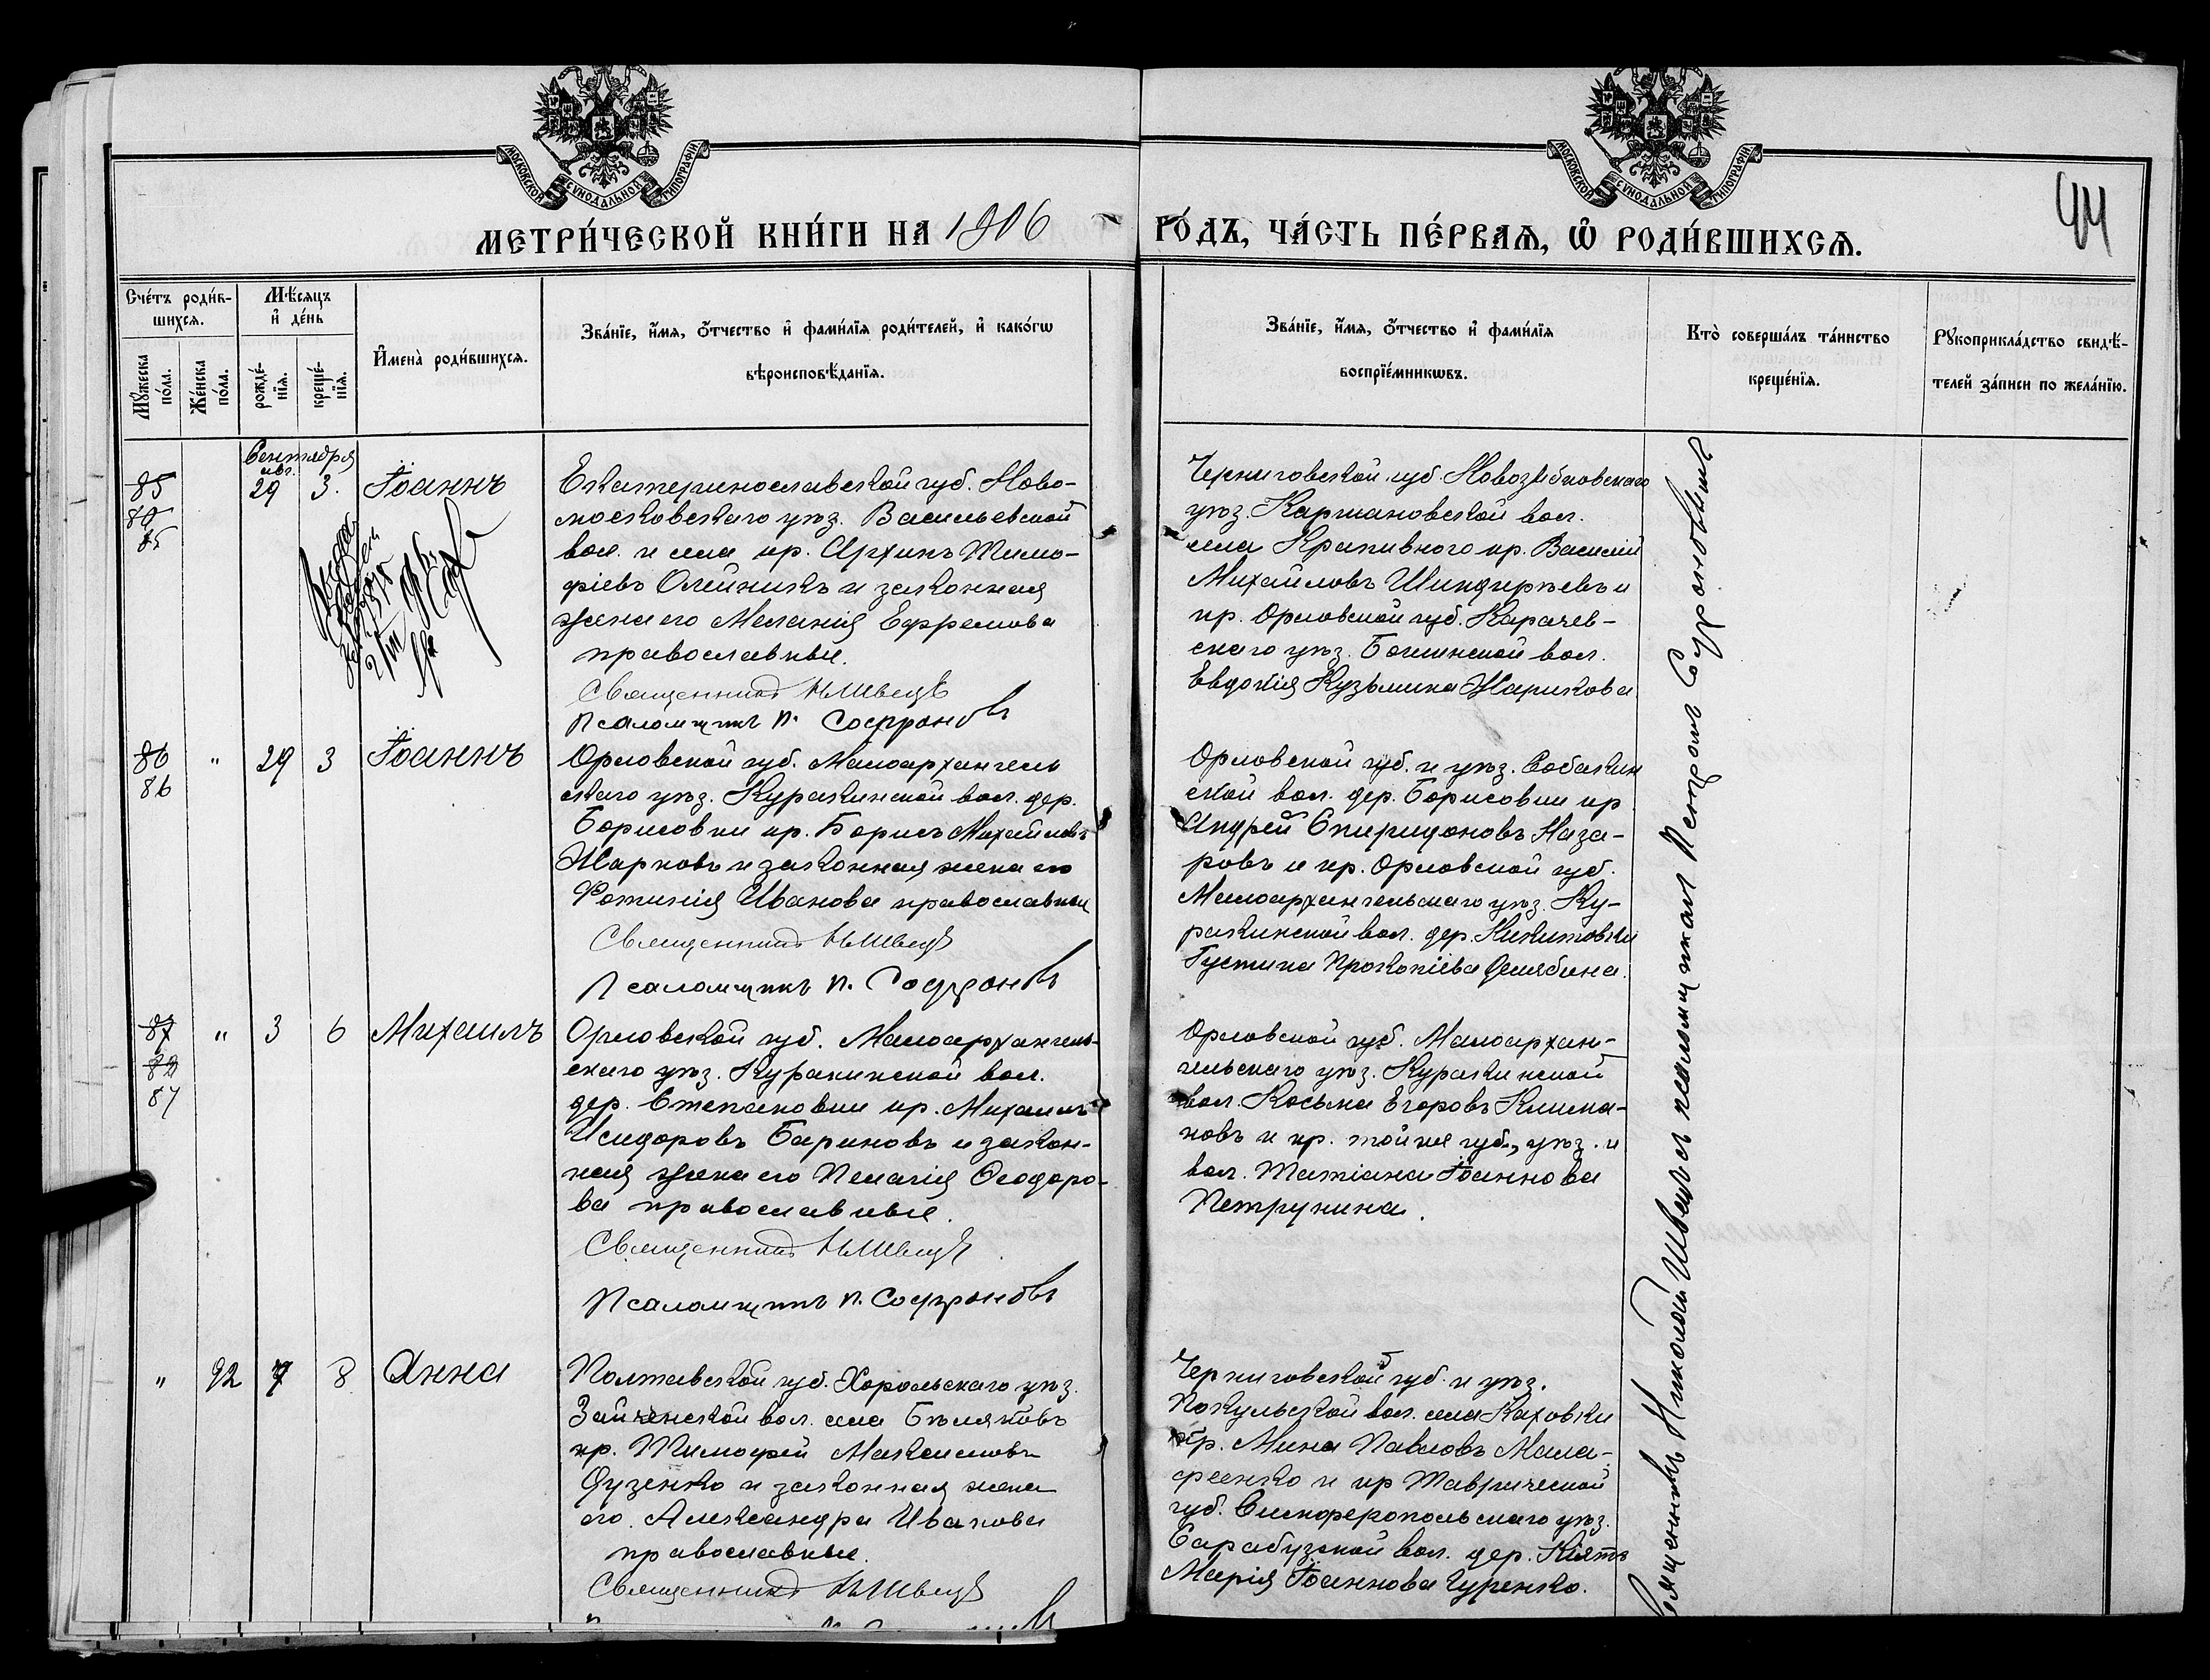 МОСКОВСКОЙ СѴНОДАЛЬНОЙ ТИПОГРАФІИ
МОСКОВСКОЙ СѴНОДАЛЬНОЙ ТИПОГРАФІИ
44
МЕТРИ́ЧЕСКОЙ КНИ́ГИ НА 1906
ГО́ДЪ, ЧА́СТЬ ПЕ́РВАѦ, Ѽ РОДИ́ВШИХСѦ.
Сче́тъ роди́в-
шихсѧ.
Мꙋ́жеска по́ла.
Же́нска по́ла.
Мѣ́сѧцъ
и҆ де́нь
рожде́-
нїѧ.
креще́-
нїѧ.
И҆мена̀ роди́вшихсѧ.
Зва́нїе, и҆́мѧ, ѻ҆́тчество и҆ фами́лїѧ роди́телей, и҆ како́гѡ
вѣроисповѣ́данїѧ.
Зва́нїе, и҆́мѧ, ѻ҆́тчество и҆ фами́лїѧ
воспрїе́мникѡвъ.
Кто̀ соверша́лъ та́инство
креще́нїѧ.
Рꙋкоприкла́дство свидѣ́-
телей за́писи по жела́нїю.
Сентября
авг.
85
85
29 3. Іоаннъ
Екатеринославской губ. Ново-
московскаго уѣз. Васильевской
вол. и села кр. Архипъ Тимо-
фіевъ Олейникъ и законная
жена его Меланія Ефремова
православные.
Священникъ Н. Швецъ
Псаломщикъ П. Софроновъ
Черниговской губ. Новозыбковскаго
уѣз. вол.
села Крапивного кр. Василій
Михайловъ и
кр. Орловской губ. Карачев-
скаго уѣз. вол.
Евдокія Кузьмина Жарикова
86
86
" 29 3 Іоаннъ
Орловской губ. Малоархангель
скаго уѣз. Куракинской вол. дер.
Борисовки кр. Борисъ Михайловъ
Жарковъ и законная жена его
Фотинія Иванова православные
Священникъ Н. Швецъ
Псаломщикъ П. Софроновъ
Орловской губ. и уѣз. Собакин
ской вол. дер. Борисовки кр
Андрей Спиридоновъ Наза-
ровъ и кр. Орловской губ.
Малоархангельскаго уѣз. Ку-
ракинской вол. дер. Никитовки
Густина Прокопіева
87
88
87
" 3 6 Михаилъ
Орловской губ. Малоархангель-
скаго уѣз. Куракинской вол.
дер. Степановки кр. Михаилъ
Исидоровъ Бариновъ и закон-
ная жена его Пелагія Ѳеодоро-
ва православные.
Священникъ Н. Швецъ
Псаломщикъ П. Софроновъ
Орловской губ. Малоархан-
гельскаго уѣз. Куракинской
вол. Косьма Егоровъ Клима-
новъ и кр. той же губ., уѣз. и
вол. Татіана Іоаннова
Петрунина.
" 92 7 8 Анна
Полтавской губ. Хорольскаго уѣз.
Зайченской вол. села Бѣляковъ
кр. Тимофей Максимовъ
Дузенко и законная жена
его Александра Иванова
православные.
Священникъ Н. Швецъ
Черниговской губ. и уѣз.
вол. села
кр. Мина Павловъ Мала-
феенко и кр Таврической
губ. Симферопольскаго уѣз.
Сарабузской вол. дер. Кіятъ
Марія Іоаннова Чуренко.
Священникъ Николай Швецъ съ псаломщикомъ Петромъ Софроновымъ